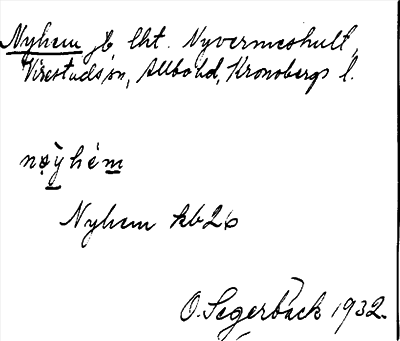 Nyhem fb lht. Nyvermeshult,
Virestads sn, Allbo hd, Kronobergs l.
nøỳhém
Nyhem kb 26
O. Segerbäck 1932.